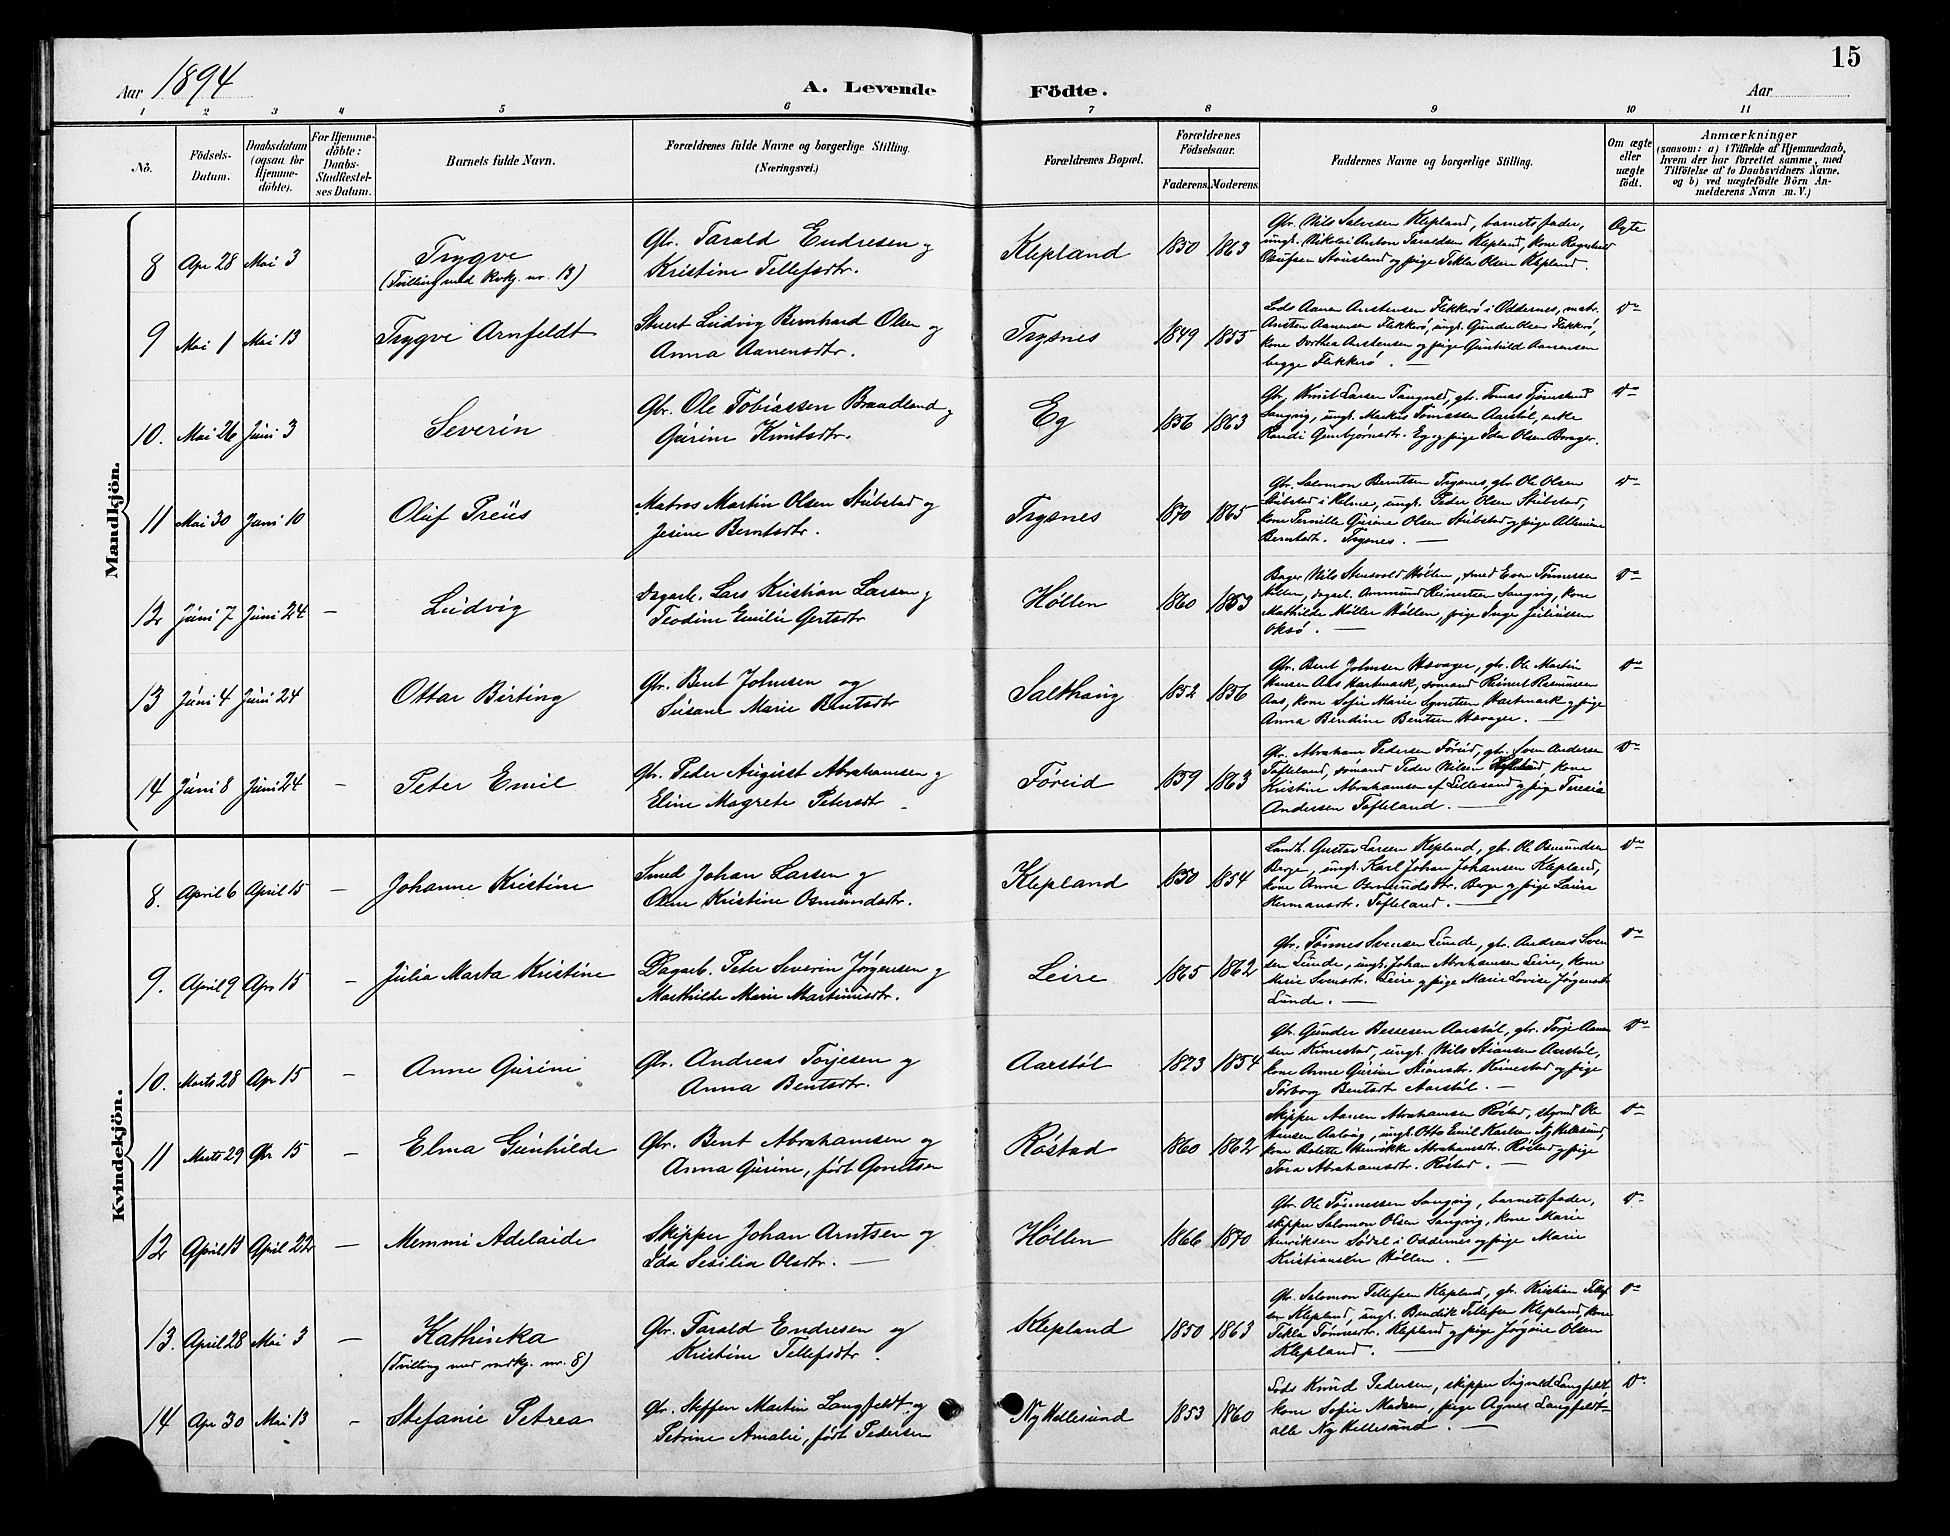 15
Aar 1894
A. Levende
Födte.
Aar
1 2 3 4 5 6 7 8 9 10 11
No.
Födsels-
Datum.
Daabsdatum
(ogsaa for
Hjemme-
döbte).
For Hjemme-
döbte:
Daabs-
Stadfæstel-
ses Datum.
Barnets fulde Navn.
Forældrenes fulde Navne og borgerlige Stilling.
(Næringsvei.)
Forældrenes Bopæl.
Forældrenes
Födselsaar.
Faderens. Moderens.
Faddernes Navne og borgerlige Stilling.
Om ægte
eller
uægte
födt.
Anmærkninger
(saasom: a) i Tilfælde af Hjemmedaab,
hvem der har forrettet samme, med
Tilföielse af to Daabsvidners Navne.
og b) ved uægtefödte Börn An-
melderens Navn m. V.)
Mandkjön.
8 Apr 28 Mai 3 Trygve
(Tvilling med Kvkj. nr. 13)
Gbr. Tarald Endresen og
Kristine Tellefsdtr.
Klepland 1850 1863
Gbr. Nils Salvesen Klepland, barnets fader,
ungk. Nikolai Anton Taraldsen Klepland, kone Ragnhild
Stausland og pige Tekla Olsen Klepland.
Ægte
9 Mai 1 Mai 13 Trygve Arnfeldt
Stuert Ludvig Bernhard Olsen og
Anna Aanensdtr.
Trysnes 1849 1855
Lods Aanen Arnstensen Flekkerö i Oddernes, matr.
Arnsten Aanensen Flekkerö, ungk. Gunder Olsen Flekkerö,
kone Dorthea Arstensen og pige Gunhild Aanensen
begge Flekkerö. —
do
10. Mai 26 Juni 3 Severin
Gbr. Ole Tobiassen Braadland og
Gurine Knutsdtr.
Eg 1856 1863
Gbr. Knut Larsen Tangvald, gbr. Tomas
Langvig, ungk. Markus Tomassen Aarstöl, enke
Randi Gunbjørnsdtr. Eg og pige Ida Olsen Borager.
do
11 Mai 30 Juni 10 Oluf Preus
Matros Martin Olsen Stubstad og
Jesine Berntsdtr.
Trysnes 1870 1865
Gbr. Salomon Berntsen Trysnes, gbr. Ole Olsen
Stubstad i Holme, ungk. Peder Olsen Stubstad,
kone Pernille Gurine Olsen Stubstad og pige
Berntsdt. Trysnes. —
do
12 Juni 7 Juni 24 – Ludvig
Dagarb. Lars Kristian Larsen og
Teodine Emilie Gertsdtr
Høllen 1860 1853
Bager Nils Stensvold Høllen, smed Even Tønnessen
Høllen, dagarb. Ammund Reinertsen Langvig, kone
Mathilde Møller Høllen, pige Inga Juliussen
Oksö. —
do
13 Juni 4 Juni 24 Ottar Birting
Gbr. Bent Johnsen og
Susane Marie Bentsdtr
Salthaug 1852 1856
Gbr. Bent Johnsen Havager, gbr. Ole Martin
Hansen Aas Hartmark, sömand Reinert Rasmussen
Aas, kone Sofie Marie Syvertsen Hartmark og pige
Anna Bendine Bentsen Havager. —
do
14 Juni 8 Juni 24 – Peter Emil
Gbr. Peder August Abrahamsen og
Eline Magrete Petersdt –
Føreid 1859 1863
Gbr. Abraham Pedersen Föreid, gbr. Sven Andersen
Tofteland, sömand Peder Nilsen, kone
Kristine Abrahamsen af Lillesand og pige Teresia
Andersen Tofteland. —
do
Kvindekjön.
8. April 6 April 15 – Johanne Kristine
Smed Johan Larsen og
Oline Kristine Osmundsdtr.
Klepland 1850 1854
Landh. Gustav Larsen Klepland, gbr. Ole Osmundsen
Berge, ungk. Karl Johan Johansen Klepland,
kone Anne Osmundsdtr. Berge og pige Laura
Hermansdtr. Tofteland. —
do
9. April 9 Apr 15 – Julia Marta Kristine
Dagarb. Peter Severin Jørgensen og
Mathilde Marie Martinusdtr.
Leire 1865 1862
Gbr. Tønnes Svensen Lunde, gbr. Andreas Sven
sen Lunde, ungk. Johan Abrahamsen Leire, kone
Marie Svensdtr. Leire og pige Marie Lovise Jørgensdtr
Lunde. —
do
10. Marts 28 Apr 15 – Anne Gurine
Gbr. Andreas Torjesen og
Anna Bentsdtr.
Aarstöl 1873 1854
Gbr. Gunder Bessesen Aarstöl, gbr. Torje Aanen
sen Kimestad, ungk. Nils Stiansen Aarstöl,
kone Anne Gurine Stiansdtr. Kimestad og pige
Torborg Bentsdtr Aarstöl. —
do
11 Marts 29 Apr 15 – Elma Gunhilde
Gbr. Bent Abrahamsen og
Anna Gurine, født Govertsen
Røstad 1860 1862
Skipper Aanen Abrahamsen Röstad, styrmd Ole
Hansen, ungk. Otto Emil Karlsen Ny Hellesund,
kone Bolette Henrikke Abrahamsdtr. Röstad og pige
Tora Abrahamsdtr. Röstad. —
do
12 April 13 April 22 – Memmi Adelaide
Skipper Johan Arntsen og
Ida Sesilia Olsdtr. —
Høllen 1866 1870
Gbr. Ole Tønnessen Langvig, barnets fader,
skipper Salomon Olsen Langvig, kone Marie
Henriksen Södal i Oddernes og pige Marie
Kristiansen Høllen. —
do
13. April 28 Mai 3 – Kathinka
(Tvilling med mdkj. nr. 8)
Gbr. Tarald Endresen og
Kristine Tellefsdtr.
Klepland 1850 1863
Gbr. Salomon Tellefsen Klepland, gbr. Kristian Tellef
sen Klepland, ungk. Bendik Tellefsen Klepland, kone
Tekla Tønnesdtr. Klepland og pige Jørgine Olsen
Klepland. —
do
14 Apr 30 Mai 13 – Stefanie Petrea
Gbr. Steffen Martin Langfeldt og
Petrine Amalie, født Pedersen
Ny Hellesund 1853 1860
Lods Knud Pedersen, skipper Sigvald Langfeldt
kone Sofie Madsen, pige Agnes Langfeldt –
alle Ny Hellesund. —
do